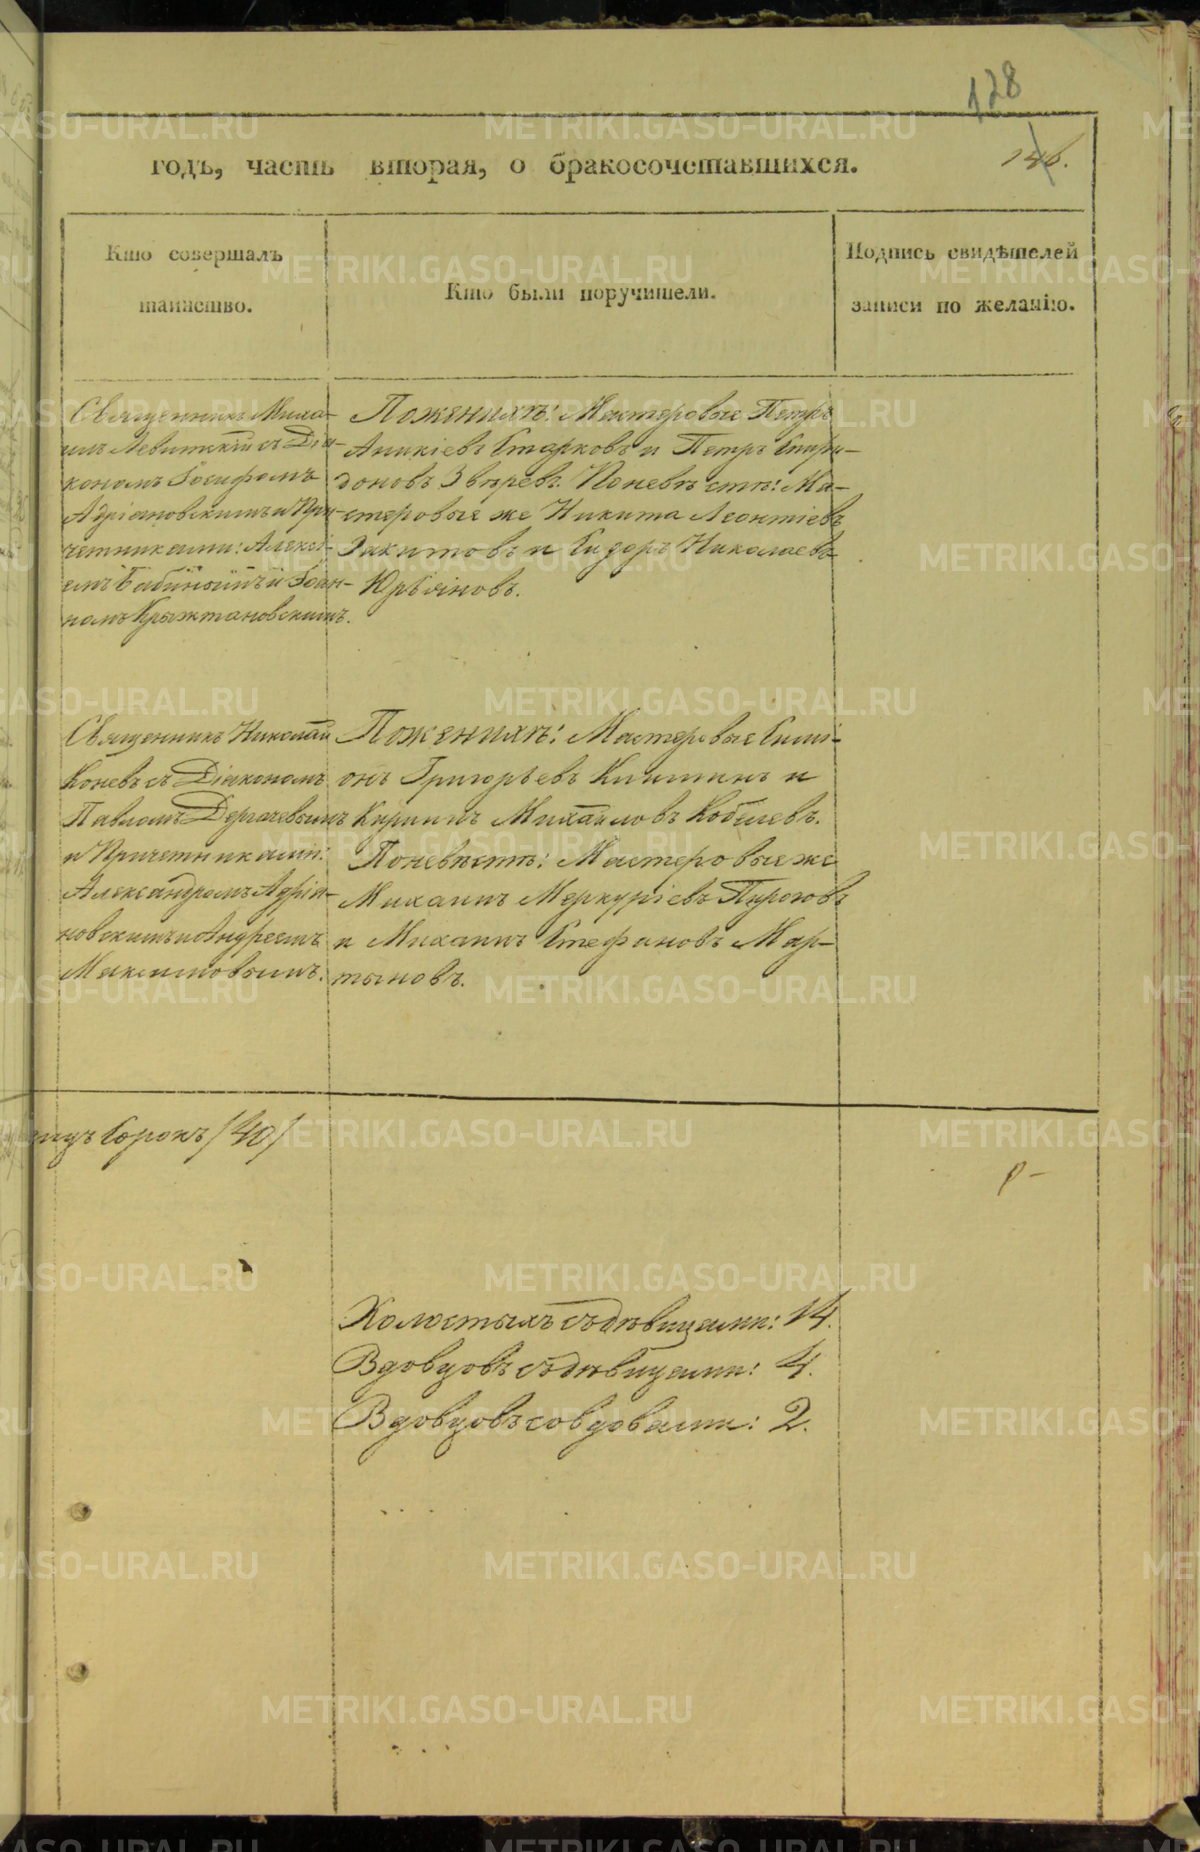 128
146.
годъ, часть вторая, о бракосочетавшихся.
Кто совершалъ
таинство.
Кто были поручители.
Подпись свидѣтелей
записи по желанію.
Священникъ Миха-
илъ Левитскій съ Діа-
кономъ Іосифомъ
Адріановскимъ и При-
четниками: Алексѣ-
емъ Бабинымъ и Іоан-
номъ Крыжтановскимъ.
По женихѣ: Мастеровые Петръ
Аникіевъ Старковъ и Петръ Спири-
доновъ Звѣревъ. По невѣстѣ: Ма-
стеровые же Никита Леонтіевъ
и Сидоръ Николаевъ
Юрьяновъ.
Священникъ Николай
Коневъ съ Діакономъ
Павломъ Дергачевымъ
и Причетниками:
Александромъ Адріа-
новскимъ и Андреемъ
Максимовымъ.
По женихѣ: Мастеровые Симі-
онъ Григорьевъ и
Кирилъ Михайловъ Кобелевъ.
По невѣстѣ: Мастеровые же
Михаилъ Меркуріевъ Пироговъ
и Михаилъ Стефановъ Мар-
тыновъ.
Сорокъ /40/
Холостыхъ съ дѣвицами: 14.
Вдовцовъ съ дѣвицами: 4.
Вдовцовъ со вдовами: 2.
METRIKI.GASO-URAL.RU